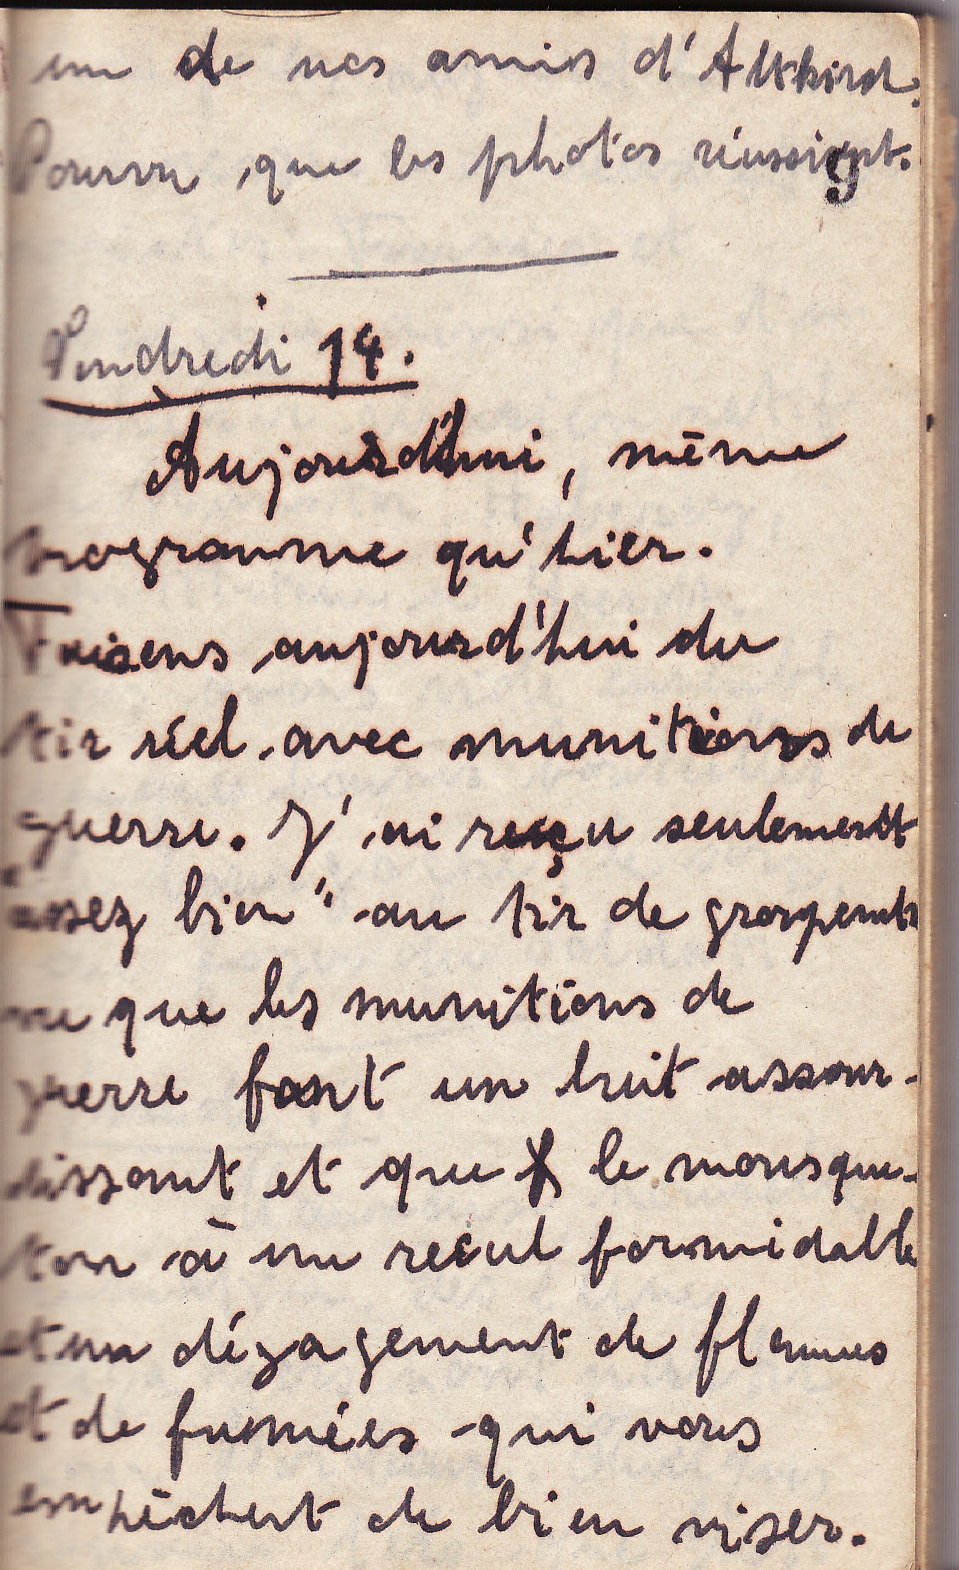 un de nos amis d'Altkirch.
Pourvu que les photos réussissent.
9
Vendredi 14.
Aujourd'hui, même
programme qu'hier.
Faisons aujourd'hui du
tir réel avec munitions de
guerre. J'ai reçu seulement
"assez bien" au tir de groupement
vu que les munitions de
guerre font un bruit assour-
dissant et que le mousque-
ton à un recul formidable
et un dégagement de flammes
et de fumées qui vous
empêchent de bien viser.